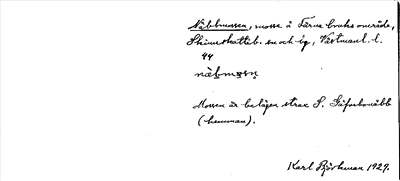 Näbbmossen, mosse å Färna bruks område,
Skinnskatteb. sn och  , Västmanl. l.
44
näbmosn
Mossen är belägen strax S. Gäfsebonäbb
(hemman).
Karl Björkman 1929.